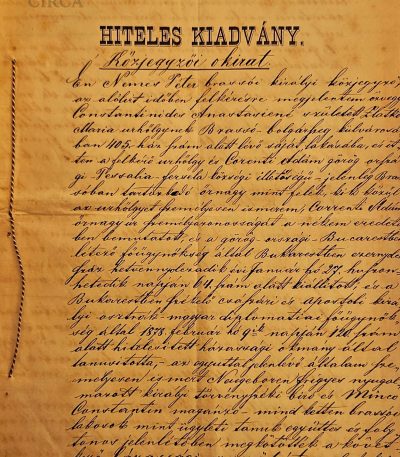 CIRCA
HITELES KIADVÁNY.
Közjegyzői okirat.
Én Nemes Péter brassói királyi közjegyző
az alólirt időben felkérésre megjelentem özvegy
Constantinides Anastasiené született Zlatko
Mária urhölgynek Brassó-bolgárszeg külvárosá
ban 405. ház szám alatt lévő saját lakásába, és ot
ten a felkérő urhölgy és Corenti Ádám görög orszá
gi-Tessalia-ferula községi illetőségű - jelenleg Bras
sóban tartózkodó őrnagy mint felek, kik közül
az urhölgyet személyesen ismerem, Correnti Ádám
őrnagy úr személyazonosságát a nékem eredeti
ben bemutatott, és a görög-országi-Bucarestben
létező főügynökség által Bukarestben ezernyolc
száz hetvennyolcadik évi január hó 27. huszon
hetedik napján 64. szám alatt kiállított, és a
Bukarestben székelő császári és apostoli kirá
lyi osztrák-magyar diplomatiai főügynök
ség által 1878. február hó 9ik napján 126. szám
alatt hitelesített házassági okmány által
tanusította, - az egyuttal jelenlévő általam sze
mélyesen ismert Neugeboren Frigyes nyugal
mazott királyi törvényszéki biró és Minco
Constantin magánzó - mind ketten brassói
lakosok mint ügyleti tanuk együttes és foly
tonos jelenlétében megkötötték a követ